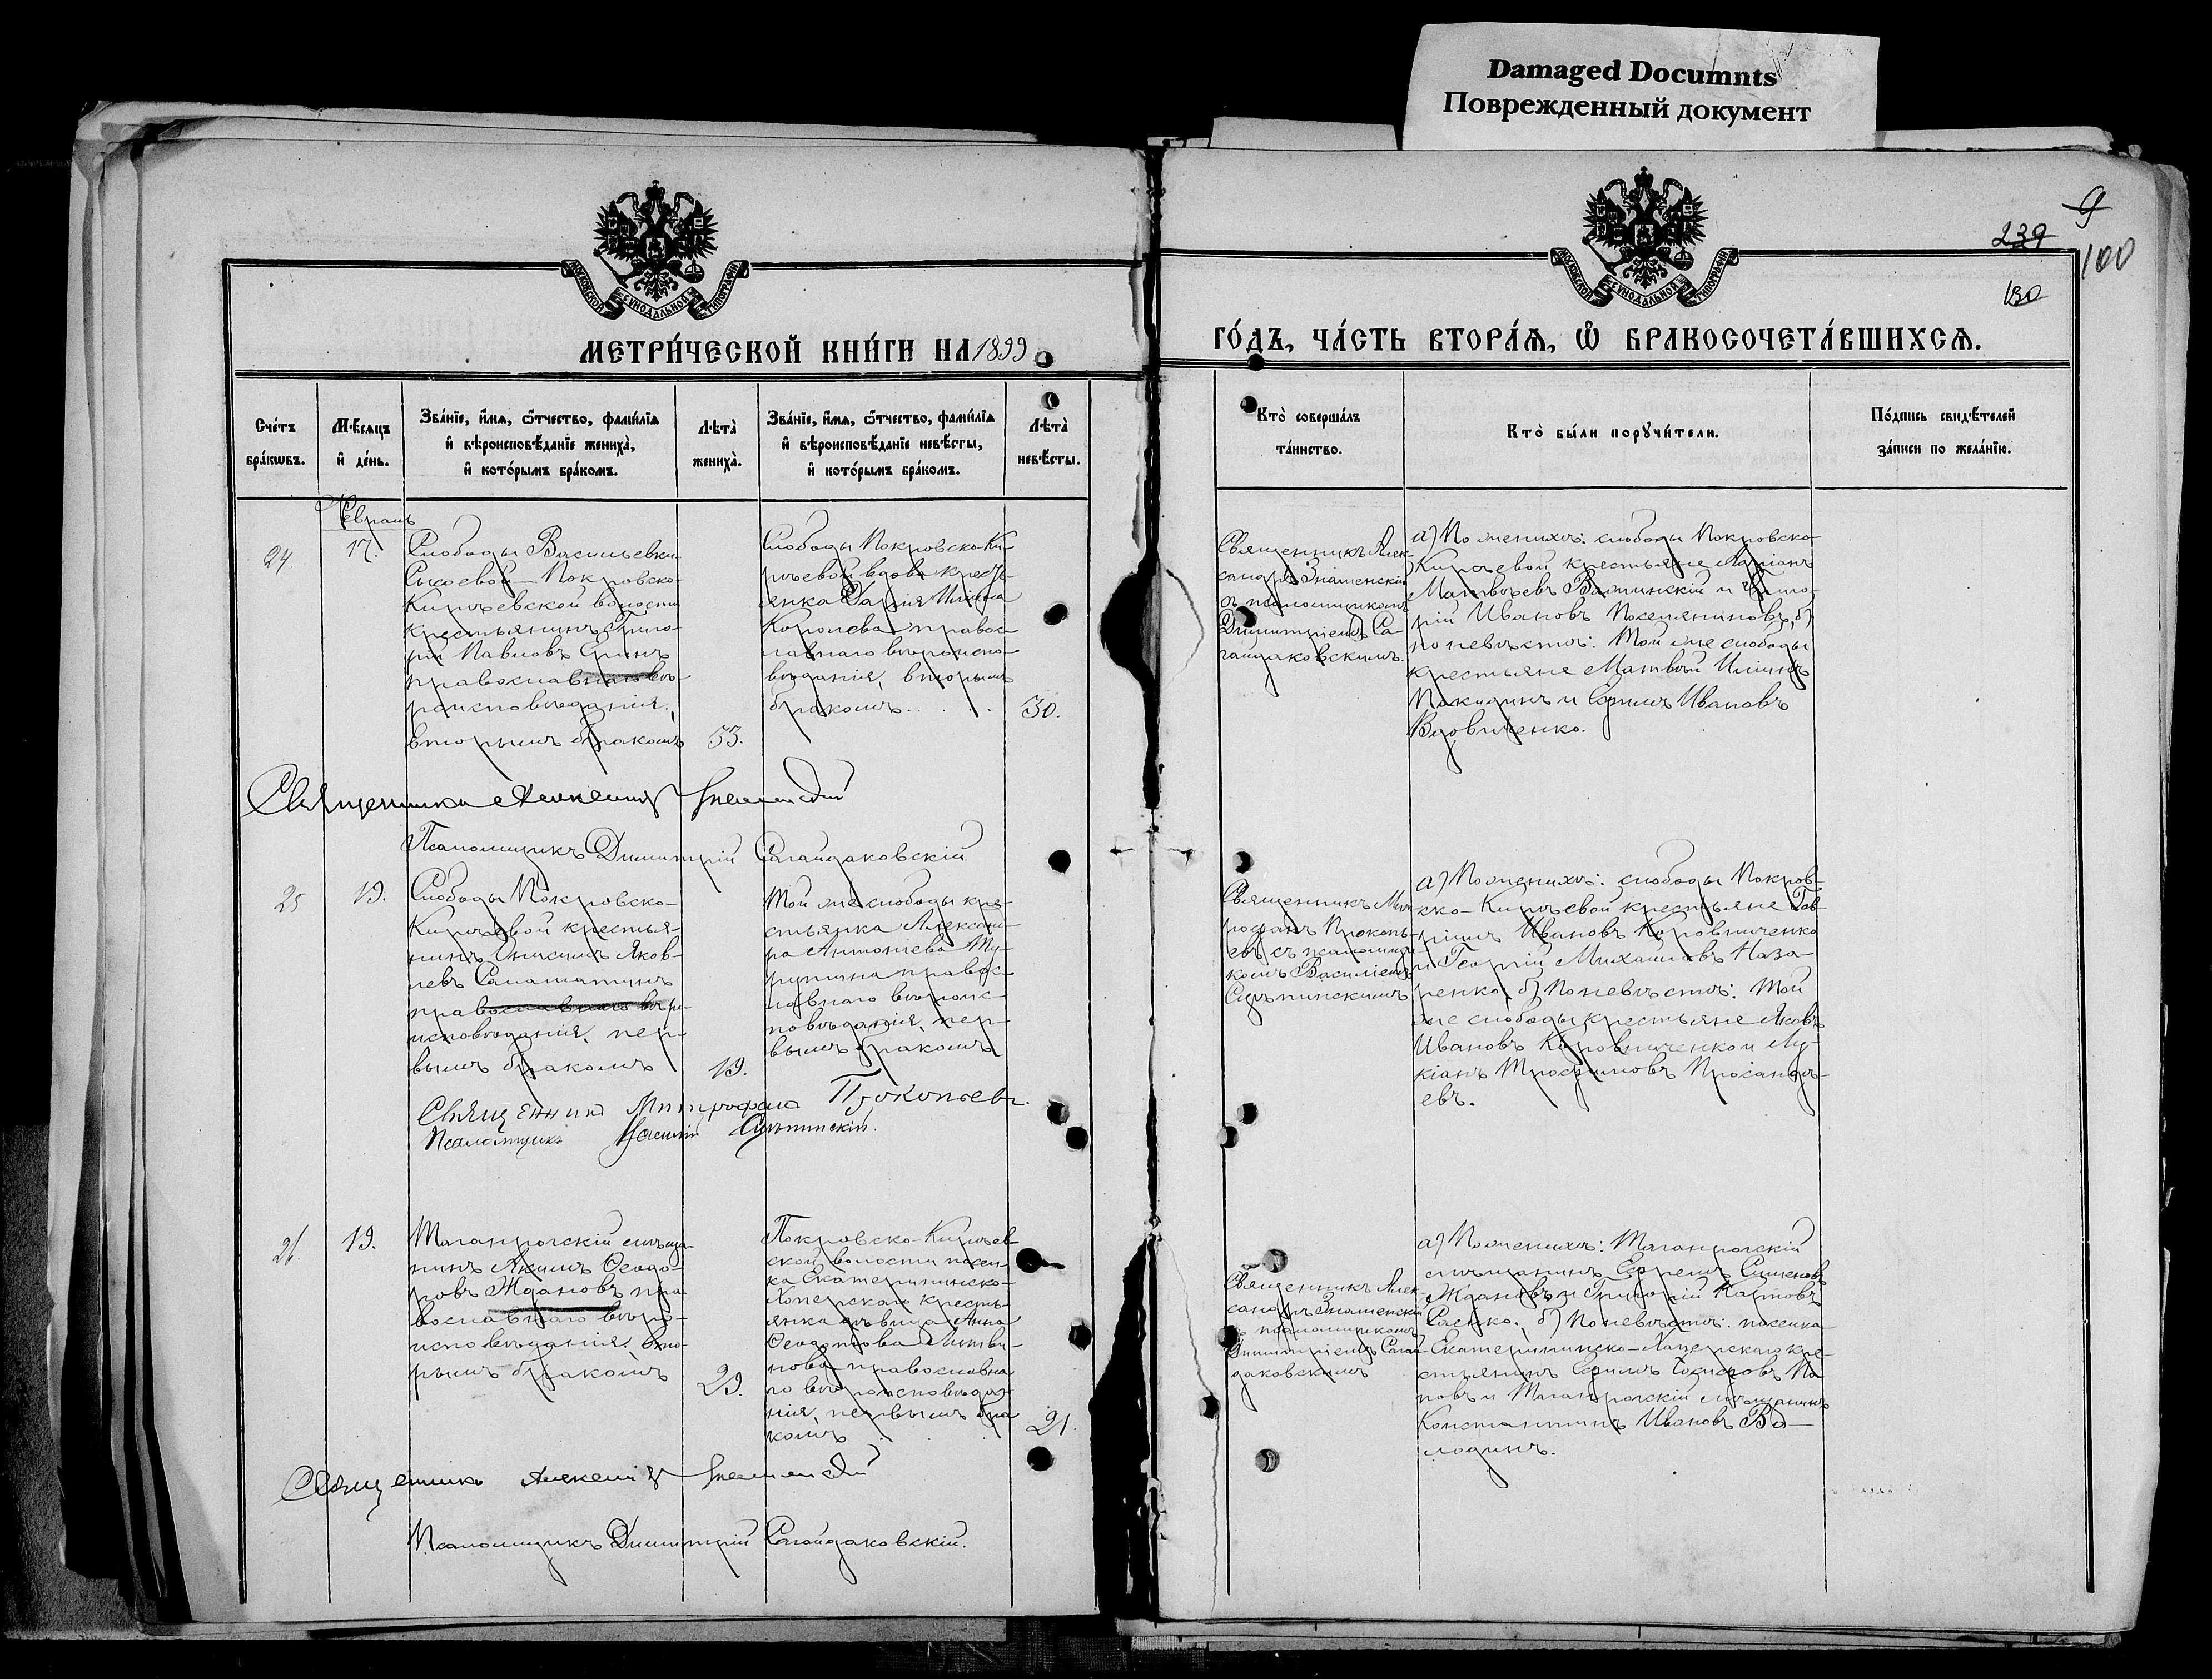 Damaged Documnts
Поврежденный документ
9
239
100
130
МОСКОВСКОЙ СѴНОДАЛЬНОЙ ТИПОГРАФІИ
МОСКОВСКОЙ СѴНОДАЛЬНОЙ ТИПОГРАФІИ
МЕТРИ́ЧЕСКОЙ КНИ́ГИ НА 1899
ГО́ДЪ, ЧА́СТЬ ВТОРА́Ѧ, Ѡ҆ БРАКОСОЧЕТА́ВШИХСѦ.
Сче́тъ
бра́кѡвъ.
Мѣ́сѧцъ
и҆ де́нь.
Зва́нїе, и҆́мѧ, ѻ҆́тчество, фами́лїѧ
и҆ вѣроисповѣ́данїе жениха̀,
и҆ кото́рымъ бра́комъ.
Лѣта̀
жениха̀.
Зва́нїе, и҆́мѧ, ѻ҆́тчество, фами́лїѧ
и҆ вѣроисповѣ́данїе невѣ́сты,
и҆ кото́рымъ бра́комъ.
Лѣта̀
невѣ́сты.
Кто̀ соверша́лъ
та́инство.
Кто̀ бы́ли порꙋчи́тели.
По́дпись свидѣ́телей
за́писи по жела́нїю.
Февраль
24.
17.
Слободы Васильевки-
Сысоевой-Покровско-
Кирѣевской волости
крестьянинъ Григо-
рій Павловъ
православнаго вѣ-
роисповѣданія,
вторымъ бракомъ
53.
Слободы Покровско-Ки-
рѣевой вдова кресть-
янка Дарія Ильина
Королева правос-
лавнаго вѣроиспо-
вѣданія, вторымъ
бракомъ . . .
30.
Священникъ Алек-
сандръ Знаменскій
съ псаломщикомъ
Димитріемъ Са-
гайдаковскимъ.
а) По женихѣ: слободы Покровско-
Кирѣевой крестьяне
Матвѣевъ и Григо-
рій Ивановъ Поселяниновъ, б)
по невѣстѣ: той же слободы
крестьяне Матвѣй Ильинъ
и Ивановъ
Вдовиченко.
Священникъ Знаменскій
Псаломщикъ Димитрій Сагайдаковскій
25
19.
Слободы Покровско-
Кирѣевой крестья-
нинъ Яков-
левъ
православнаго вѣро-
исповѣданія, пер-
вымъ бракомъ
19.
Той же слободы кре-
стьянка Алексан-
дра Антоніева
правос-
лавнаго вѣроис-
повѣданія, пер-
вымъ бракомъ
Священникъ Мит-
рофанъ Прокопь-
евъ съ псаломщи-
комъ Василіемъ
а) По женихѣ: слободы Покров-
ско-Кирѣевой крестьяне Гав-
ріилъ Ивановъ Коровниченко
и Георгій Михаиловъ Наза-
ренко, б) по невѣстѣ: той
же слободы крестьяне Яковъ
Ивановъ Коровниченко и Лу-
кіанъ Трофимовъ
евъ.
Священникъ Митрофанъ Прокопьевъ.
Псаломщикъ Василій
26.
19.
Таганрогскій мѣща-
нинъ Акимъ Ѳеодо-
ровъ Ждановъ пра-
вославнаго вѣро-
исповѣданія, вто-
рымъ бракомъ
29.
Покровско-Кирѣев-
ской волости посел-
ка Екатерининско-
Хоперскаго кресть-
янка дѣвица Анна
Ѳеодотова Литви-
нова православна-
го вѣроисповѣда-
нія, первымъ бра-
комъ . . .
21.
Священникъ Алек-
сандръ Знаменскій
съ псаломщикомъ
Димитріемъ Сагай-
даковскимъ
а) По женихѣ: Таганрогскій
мѣщанинъ Ефремъ Симеоновъ
Ждановъ и Григорій Карповъ
б) По невѣстѣ: поселка
Екатерининско-Хоперскаго кре-
стьянинъ По-
повъ и Таганрогскій мѣщанинъ
Константинъ Ивановъ Во-
лодинъ.
Священникъ Знаменскій
Псаломщикъ Димитрій Сагайдаковскій.